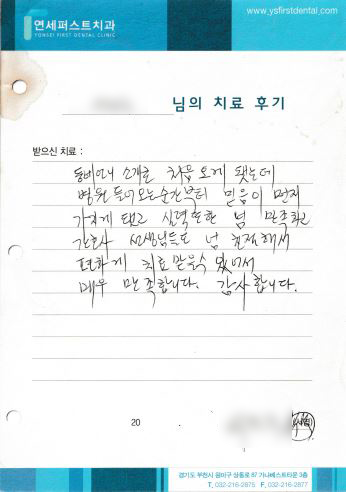 연세퍼스트치과
YONSEI FIRST DENTAL CLINIC
www.ysfirstdental.com
님의 치료 후기
받으신 치료 :
동생언니 소개로 처음 오게 됐는데
병원 들어오는순간부터 믿음이 먼저
가지게 됐고 실력또한 넘 만족하고
간호사 선생님들도 넘 친절해서
편하게 치료받을수 있어서
매우 만족합니다. 감사합니다.
20
(서명)
경기도 부천시 원미구 상동로 87 가나베스트타운 3층
T, 032-216-2875 F, 032-216-2877